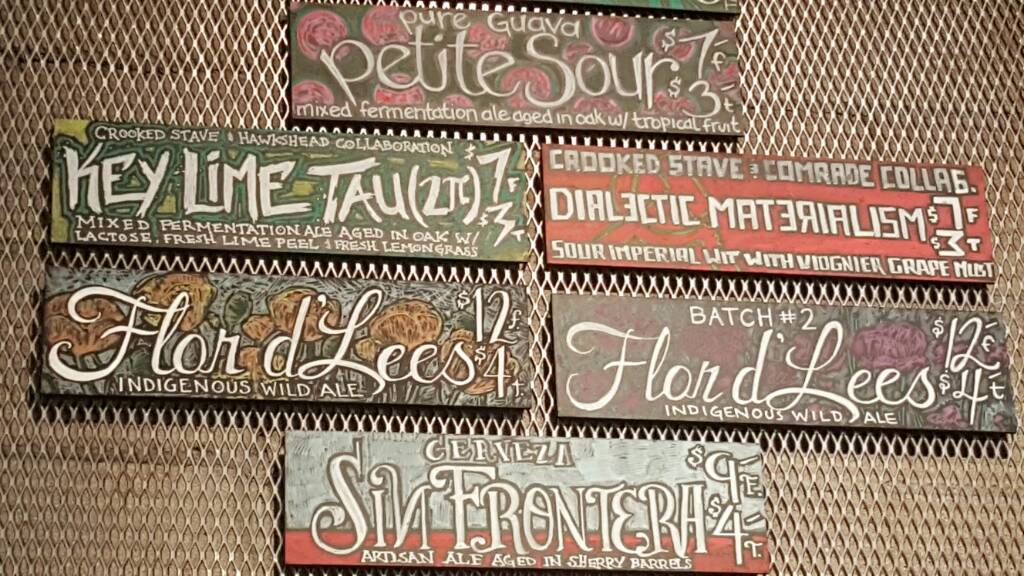 Pure Guava
Petite Sour $7 F
$3 t
mixed fermentation ale aged in oak w/ tropical fruit
CROOKED STAVE & HAWKSHEAD COLLABORATION
KEY LIME TAU (2π) $7 F
$3 T
MIXED FERMENTATION ALE AGED IN OAK W/
LACTOSE FRESH LIME PEEL & FRESH LEMONGRASS
CROOKED STAVE & COMRADE COLLAB.
DIALECTIC MATERIALISM $7 F
$3 T
SOUR IMPERIAL WIT WITH VIOGNIER GRAPE MUST
Flor d'Lees $12 f.
$4 T.
INDIGENOUS WILD ALE
BATCH #2
Flor d'Lees $12 f
$4 t
INDIGENOUS WILD ALE
CERVEZA
SIN FRONTERA $9 F.
$4 T.
ARTISAN ALE AGED IN SHERRY BARRELS